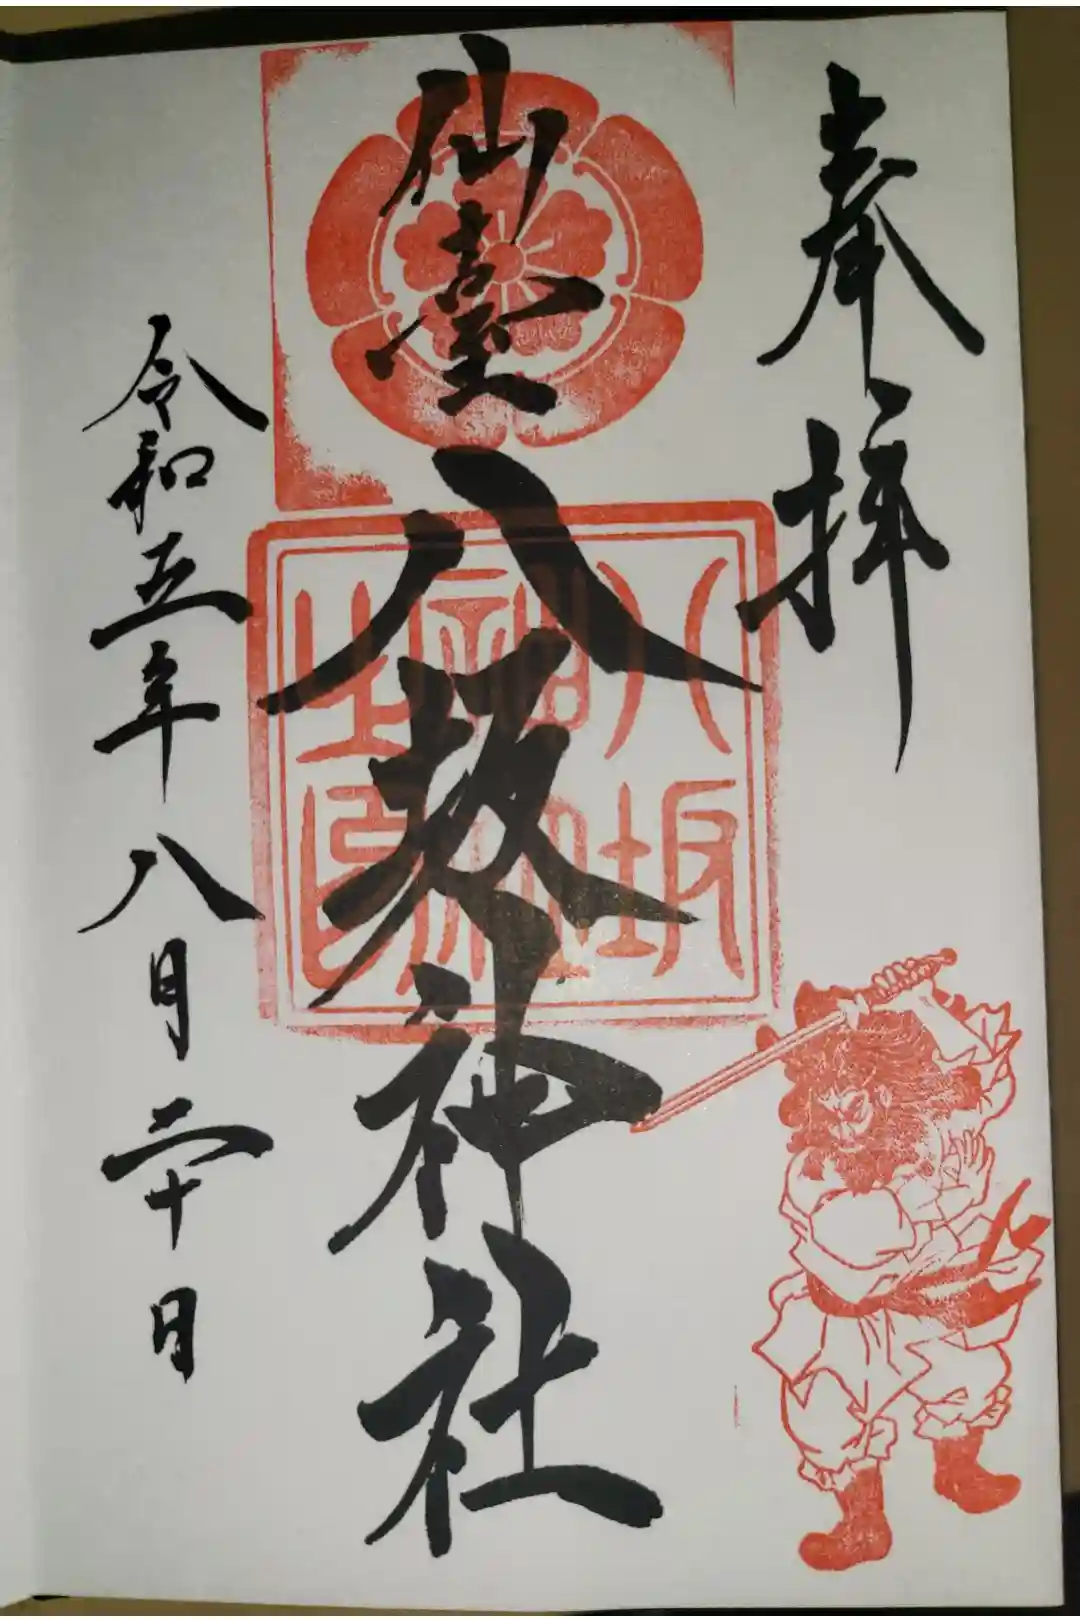 奉拝
仙臺八坂神社
令和五年八月二十日
八坂
神社
之印